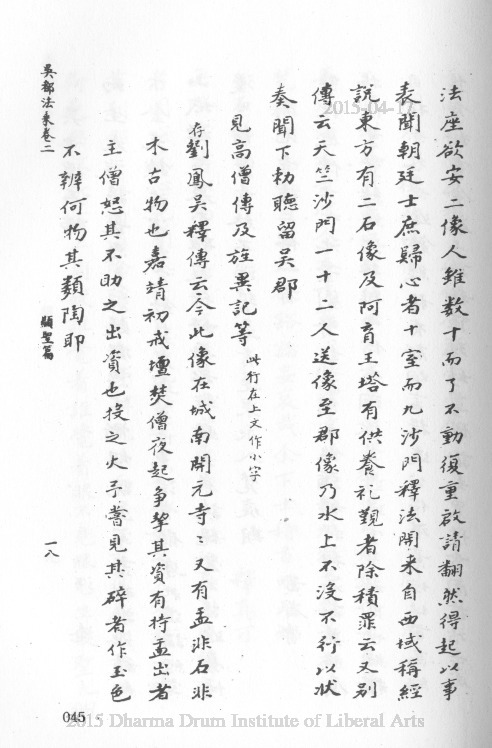 法座欲安二像人雖数十而了不動復重啟請翻然得起以事
表聞朝廷士庶歸心者十室而九沙門釋法開来自西域稱經
說東方有二石像及阿育王塔有供養礼覲者除積罪云又别
傳云天竺沙門一十二人送像至郡像乃水上不沒不行以狀
奏聞下勑聽留吳郡
見高僧傳及旌異記等 此行在上文作小字
存劉鳳吳釋傳云今此像在城南開元寺 又有盂非石非
木古物也嘉靖初戒壇焚僧夜起争挈其資有持盂出者
主僧恕其不助之出資也投之火予嘗見其碎者作玉色
不辧何物其類陶耶
吳都法乘卷二
顯聖篇
一八
045
2015-04-17
2015 Dharma Drum Institute of Liberal Arts